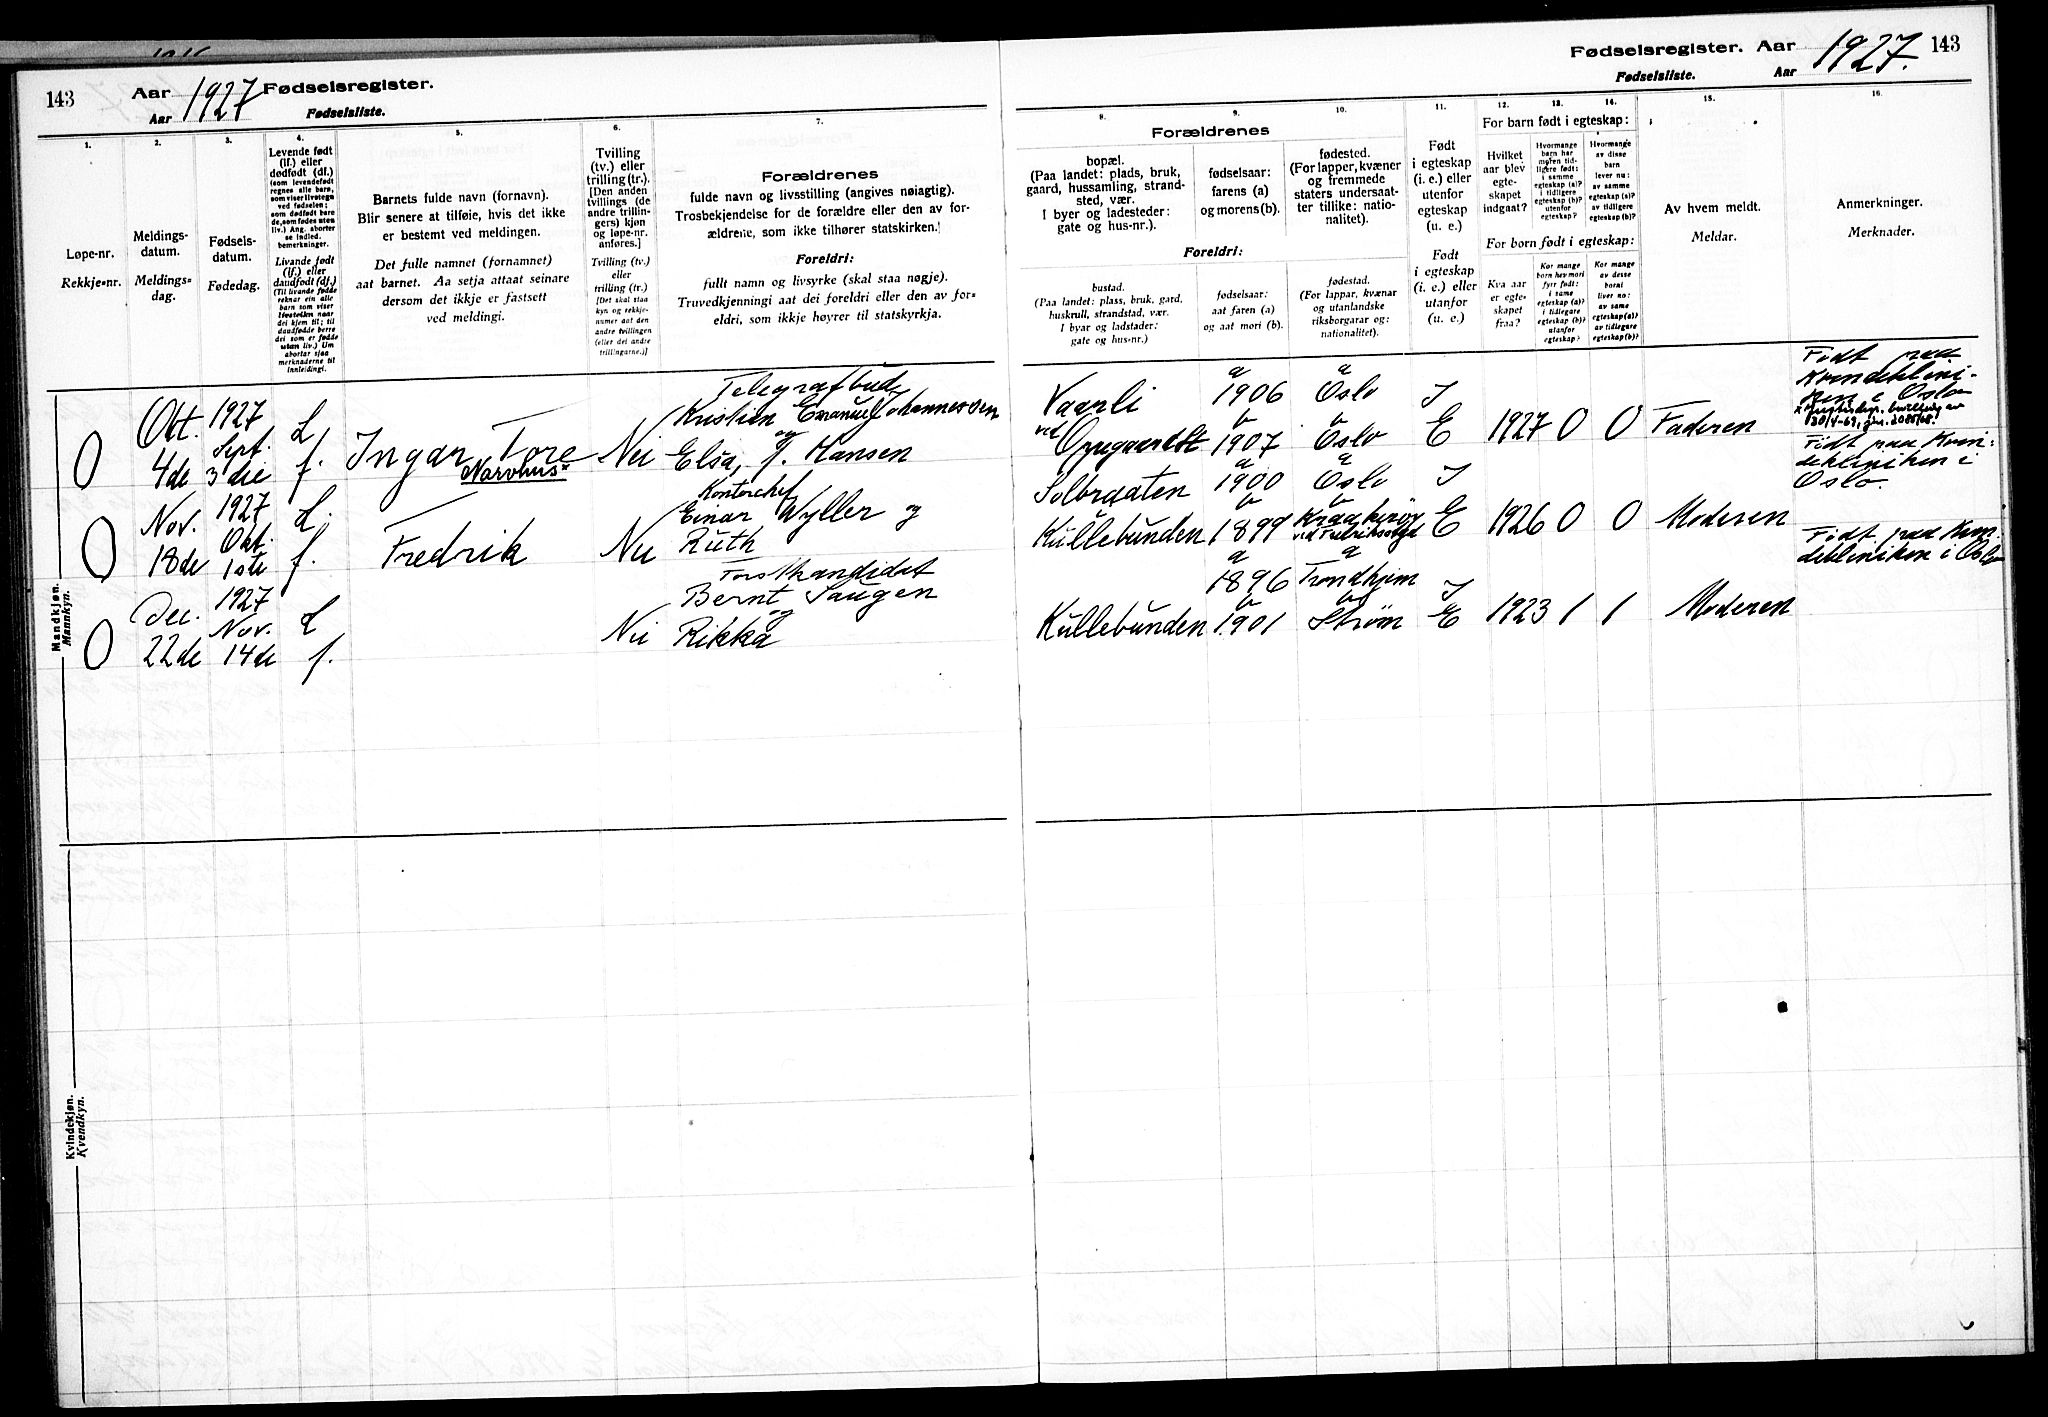 143
Aar 1927 Fødselsregister.
Aar
Fødselsliste.
1.
Løpe-nr.
Rekkje=nr.
2.
Meldings-
datum.
Meldings=
dag.
3.
Fødsels-
datum.
Fødedag.
4.
Levende født
(lf.) eller
dødfødt (df.)
(som levendefødt
regnes alle barn,
som viser livstegn
ved fødselen;
som dødfødt bare
de, som fødes uten
liv.) Ang. aborter
se indled.
bemerkninger.
Livande født
(lf.) eller
daudfødt (df.)
5.
Barnets fulde navn (fornavn).
Blir senere at tilføie, hvis det ikke
er bestemt ved meldingen.
Det fulle namnet (fornamnet)
aat barnet. Aa setja attaat seinare
dersom det ikkje er fastsett
ved meldingi.
6.
Tvilling
(tv.) eller
trilling (tr.).
[Den anden
tvillings (de
andre trillin-
gers) kjøn
og løpe-nr.
anføres.]
Tvilling (tv.)
eller
trilling (tr.)
[Det skal staa
kyn og rekkje-
nummer aat den
andre tvillingen
(eller dei andre
trillingarne.)]
7.
Forældrenes
fulde navn og livsstilling (angives nøiagtig).
Trosbekjendelse for de forældre eller den av for-
ældrene, som ikke tilhører statskirken.
Foreldri:
fullt namn og livsyrke (skal staa nøgje).
Truvedkjenningi aat dei foreldri eller den av for=
eldri, som ikkje høyrer til statskyrkja.
Fødselsregister. Aar 1927. 143
Fødselsliste. Aar
Forældrenes
8.
bopæl.
(Paa landet: plads, bruk,
gaard, hussamling, strand-
sted, vær.
I byer og ladesteder:
gate og hus-nr.).
Foreldri:
bustad.
(Paa landet: plass, bruk, gard,
huskrull, strandstad, vær.
I byar og ladstader:
gate og hus-nr.)
9.
fødselsaar:
farens (a)
og morens (b).
fødselsaar:
aat faren (a)
og aat mori (b).
10.
fødested.
(For lapper, kvæner
og fremmede
staters undersaat-
ter tillike: natio-
nalitet).
fødestad.
(For lappar, kvænar
og utanlandske
riksborgarar og:
nationalitet).
11.
Født
i egteskap
(i. e.) eller
utenfor
egteskap
(u. e.)
Født
i egteskap
(i. e.) eller
utanfor
egteskap
(u. e.)
12.
13.
14.
For barn født i egteskap:
Hvilket
aar blev
egte-
skapet
indgaat?
Hvormange
barn har
moren tid-
ligere født:
i samme
egteskap (a)?
i tidligere
egteskap (b)?
utenfor
egteskap?
Hvormange
av disse
barn
lever nu:
av samme
egteskap (a)?
av tidligere
egteskap (b)?
For born født i egteskap:
Kva aar
er egte-
skapet
fraa?
Kor mange
born hev mori
fyrr født:
i same
egteskap (a)?
i tidlegare
egteskap (b)?
utanfor
egteskap?
Kor mange
av desse
borni
liver no:
av same
egteskap (a)?
av tidlegare
egteskap (b)?
15.
Av hvem meldt.
Meldar.
16.
Anmerkninger.
Merknader.
Mandkjøn.
Mannkyn.
0 Okt. 4de 1927 Sept. 3die L. f. Ingar Tore Narvhus× Nei Telegrafbud Kristian Emanuel Johannessen og Elsa, f. Hansen Vaarli ved Oppegaard st a 1906 b 1907 a Oslo b Oslo I E 1927 0 0 Faderen Født paa Kvindeklini-
ken i Oslo
0 Nov. 18de 1927 Okt. 1ste L. f. Fredrik Nei Kontorchef Einar Wyller og Ruth Solbraaten Kullebunden a 1900 b 1899 a Oslo b Kraakerøy ved Fredriksstad I E 1926 0 0 Moderen Født paa Kvin-
dekliniken i
Oslo.
0 Dec. 22de 1927 Nov. 14de L f. Nei Forstkandidat Bernt Saugen og Rikka Kullebunden a 1896 b 1901 a Trondhjem b Strøm I E 1923 1 1 Moderen Født paa Kvin-
dekliniken i Oslo
Kvindekjøn.
Kvendkyn.